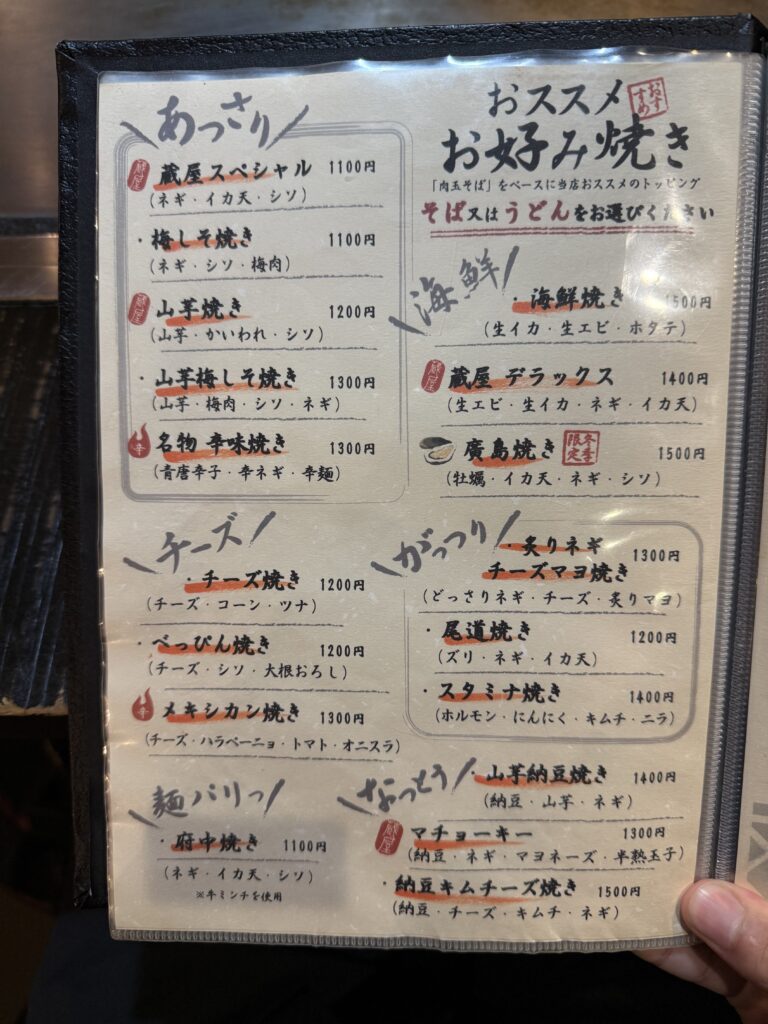 おススメ
おすすめ
お好み焼き
「肉玉そば」をベースに当店おススメのトッピング
そば又はうどんをお選びください
あっさり
蔵屋
蔵屋スペシャル 1100円
(ネギ・イカ天・シソ)
・梅しそ焼き 1100円
(ネギ・シソ・梅肉)
蔵屋
山芋焼き 1200円
(山芋・かいわれ・シソ)
・山芋梅しそ焼き 1300円
(山芋・梅肉・シソ・ネギ)
辛
名物 辛味焼き 1300円
(青唐辛子・辛ネギ・辛麺)
海鮮
・海鮮焼き 1500円
(生イカ・生エビ・ホタテ)
蔵屋
蔵屋 デラックス 1400円
(生エビ・生イカ・ネギ・イカ天)
廣島焼き 冬季限定 1500円
(牡蠣・イカ天・ネギ・シソ)
チーズ
・チーズ焼き 1200円
(チーズ・コーン・ツナ)
・べっぴん焼き 1200円
(チーズ・シソ・大根おろし)
辛
メキシカン焼き 1300円
(チーズ・ハラペーニョ・トマト・オニスラ)
がっつり
・炙りネギ
チーズマヨ焼き 1300円
(どっさりネギ・チーズ・炙りマヨ)
・尾道焼き 1200円
(ズリ・ネギ・イカ天)
・スタミナ焼き 1400円
(ホルモン・にんにく・キムチ・ニラ)
麺パリっ
・府中焼き 1100円
(ネギ・イカ天・シソ)
※牛ミンチを使用
なっとう
・山芋納豆焼き 1400円
(納豆・山芋・ネギ)
蔵屋
マチョーキー 1300円
(納豆・ネギ・マヨネーズ・半熟玉子)
・納豆キムチーズ焼き 1500円
(納豆・チーズ・キムチ・ネギ)